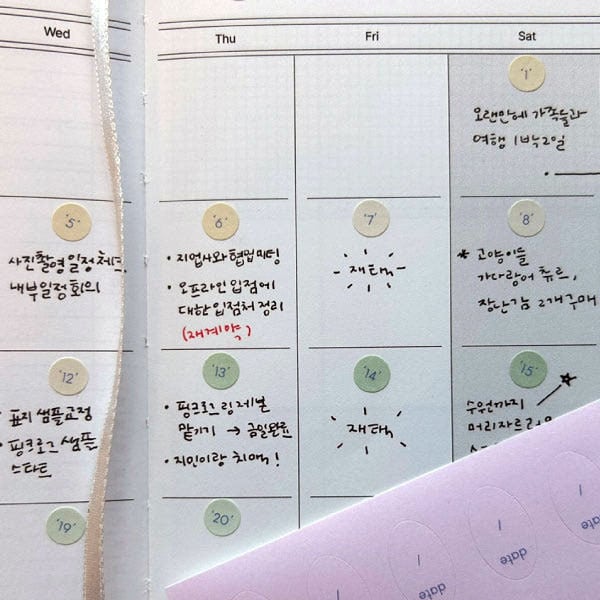 Wed Thu Fri Sat
'1'
오랜만에 가족들과
여행 1박2일
'5' '6' '7' '8'
사진촬영 일정 체크,
내부일정 회의
• 지업사와 협업미팅
• 오프라인 입점에
대한 입점처 정리
(재계약)
재택
* 고양이들
가다랑어 츄르,
장난감 2개 구매
'12' '13' '14' '15'
• 표지 샘플교정
• 핑크로즈 샘플
스타트
• 핑크로즈 링제본
맡기기 → 금일완료
• 지인이랑 치맥!
재택
수원까지
머리자르러
'19' '20'
date /
date /
date /